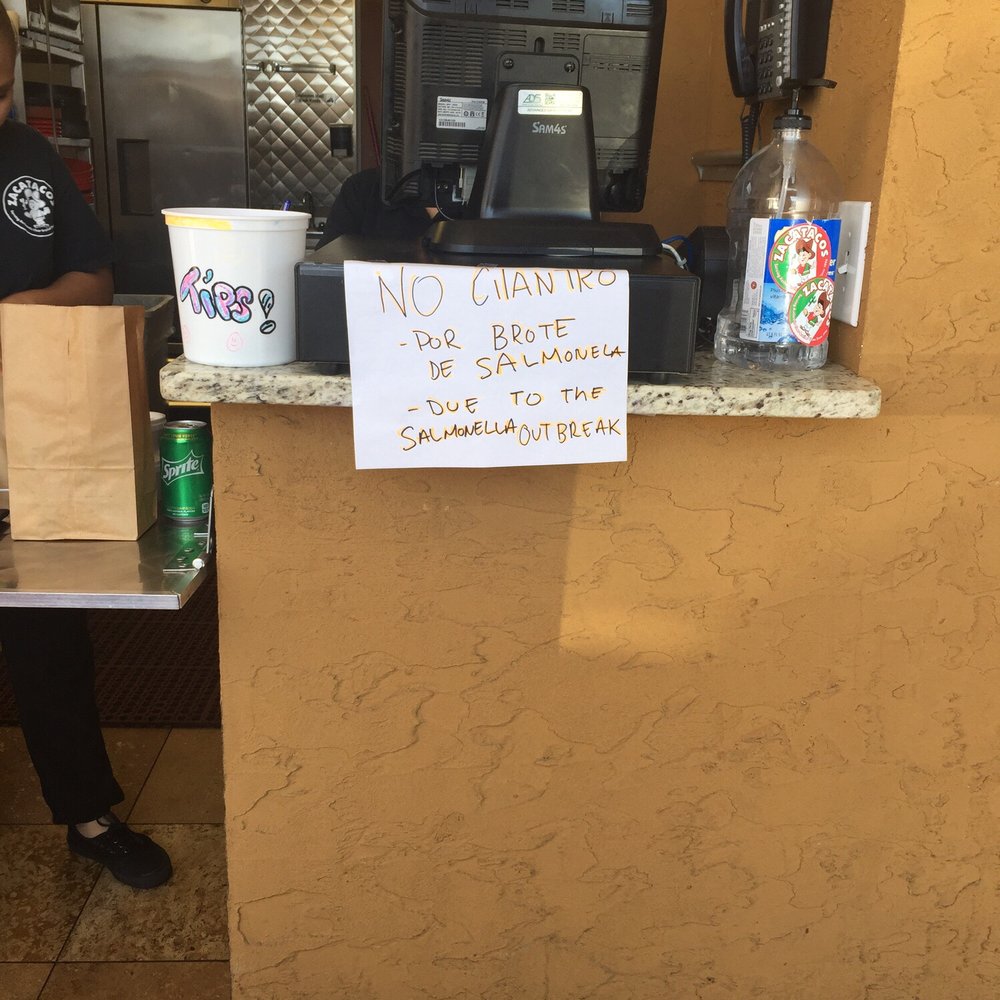 NO CILANTRO
- POR BROTE
DE SALMONELA
- DUE TO THE
SALMONELLA OUTBREAK
TIPS!
Sprite
ZACATACOS
ADS
SAM4S
ZACATACOS
ZACATACOS